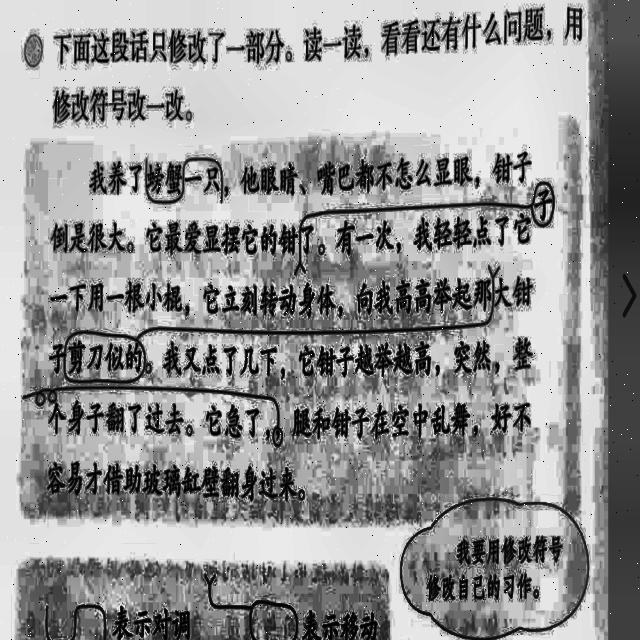 下面这段话只修改了一部分。读一读，看看还有什么问题，用
修改符号改一改。
我养了螃蟹一只，他眼睛、嘴巴都不怎么显眼，钳子
子
倒是很大。它最爱显摆它的钳了。有一次，我轻轻点了它
一下用一根小棍，它立刻转动身体，向我高高举起那大钳
子剪刀似的。我又点了几下，它钳子越举越高，突然，整
个身子翻了过去。它急了，腿和钳子在空中乱舞，好不
容易才借助玻璃缸壁翻身过来。
我要用修改符号
修改自己的习作。
表示对调
表示移动